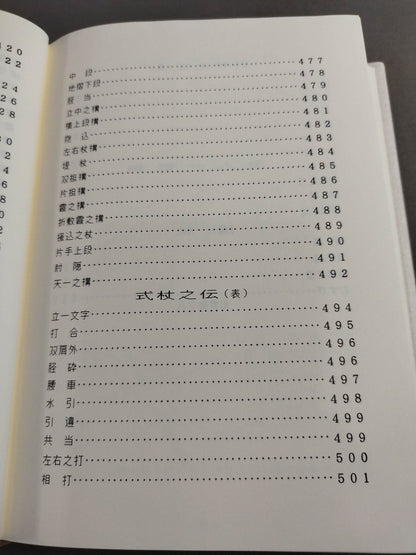 420
422
424
426
428
430
432
中段 477
地摺下段 478
脛当 479
立中之構 480
横上段構 481
掻込 482
左右杖構 483
逆杖 484
双祖構 485
片祖構 486
雲之構 487
折敷雲之構 488
撞込之杖 489
片手上段 490
肘隠 491
天一之構 492
式杖之伝(表)
立一文字 494
打合 495
双肩外 496
脛砕 496
腰車 497
水引 498
引違 499
共当 499
左右之打 500
相打 501